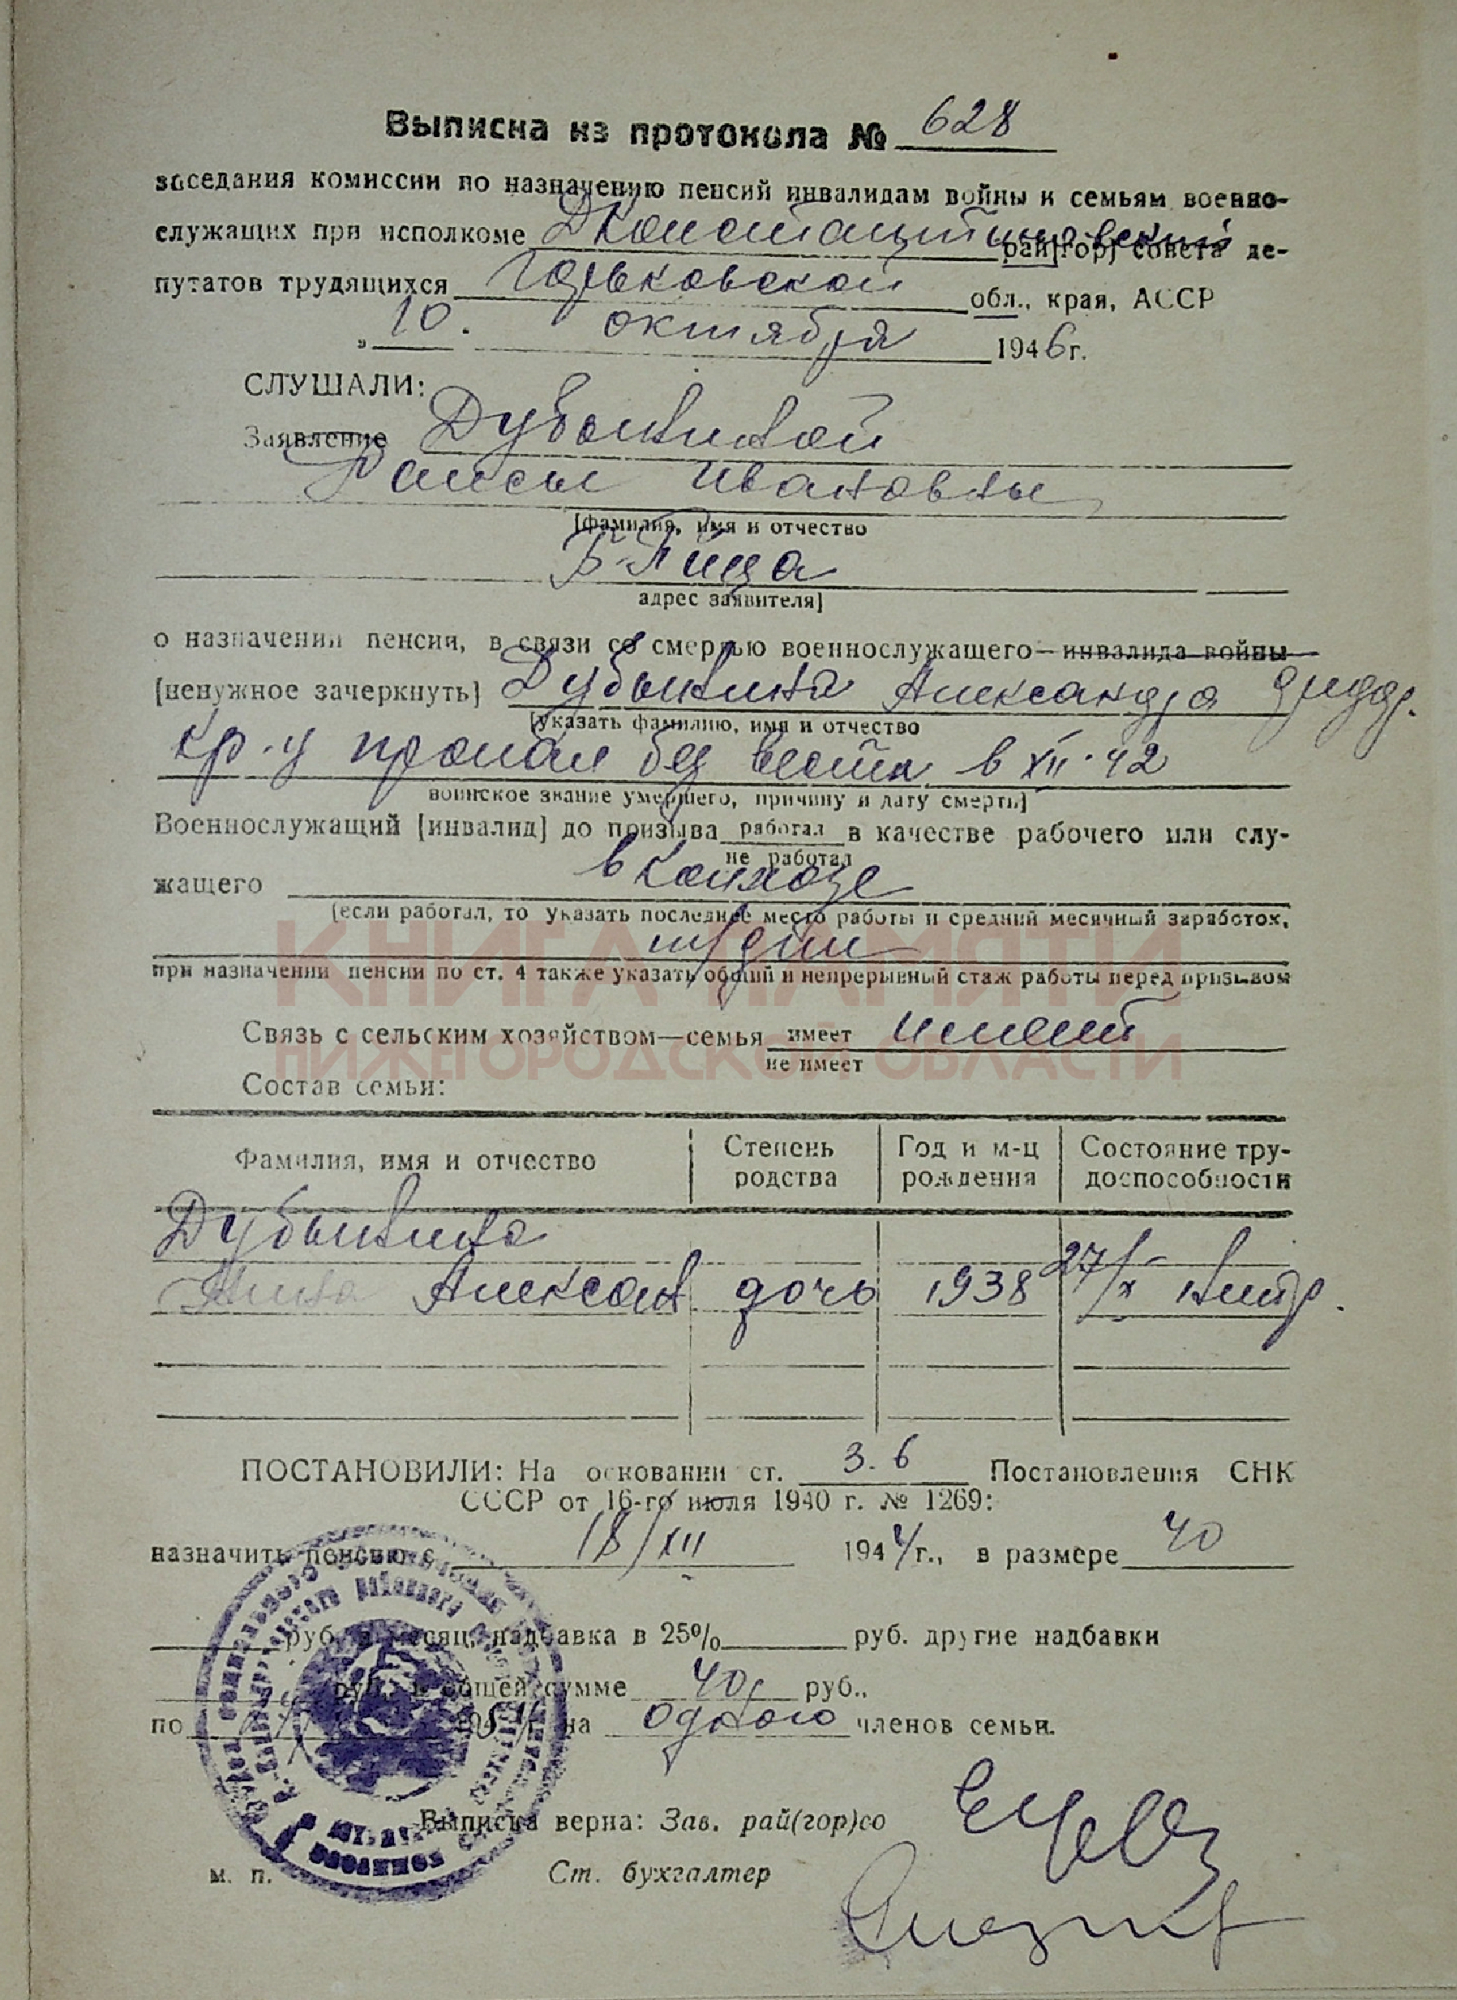 Выписка из протокола № 628
заседания комиссии по назначению пенсий инвалидам войны и семьям военно-
служащих при исполкоме Дконстантиновский рай(гор) совета де-
путатов трудящихся Горьковской обл., края, АССР
„ 10. октября 1946 г.
СЛУШАЛИ:
Заявление Дубынкиной
Раисы Ивановны
[фамилия, имя и отчество
Б-Пица
адрес заявителя]
о назначении пенсии, в связи со смертью военнослужащего—инвалида войны
[ненужное зачеркнуть] Дубынкина Александра
[указать фамилию, имя и отчество
кр-ц пропал без вести в XII-42
воинское звание умершего, причину и дату смерти]
Военнослужащий [инвалид] до призыва работал в качестве рабочего или слу-
не работал
жащего в колхозе
(если работал, то указать последнее место работы и средний месячный заработок,
тр/дни
при назначении пенсии по ст. 4 также указать общий и непрерывный стаж работы перед призывом
КНИГА ПАМЯТИ
НИЖЕГОРОДСКОЙ ОБЛАСТИ
Связь с сельским хозяйством—семья имеет имеет
не имеет
Состав семьи:
Фамилия, имя и отчество Степень родства Год и м-ц рождения Состояние тру-доспособности
Дубынкина
Нина Алексан. дочь 1938 27/X нетр.
ПОСТАНОВИЛИ: На основании ст. 3.6 Постановления СНК
СССР от 16-го июля 1940 г. № 1269:
назначить пенсию с 18/XII 1944 г., в размере 40
руб. в месяц, надбавка в 25% руб. другие надбавки
руб., в общей сумме 40 руб.,
по на одного членов семьи.
Выписка верна: Зав. рай(гор)со
м. п. Ст. бухгалтер